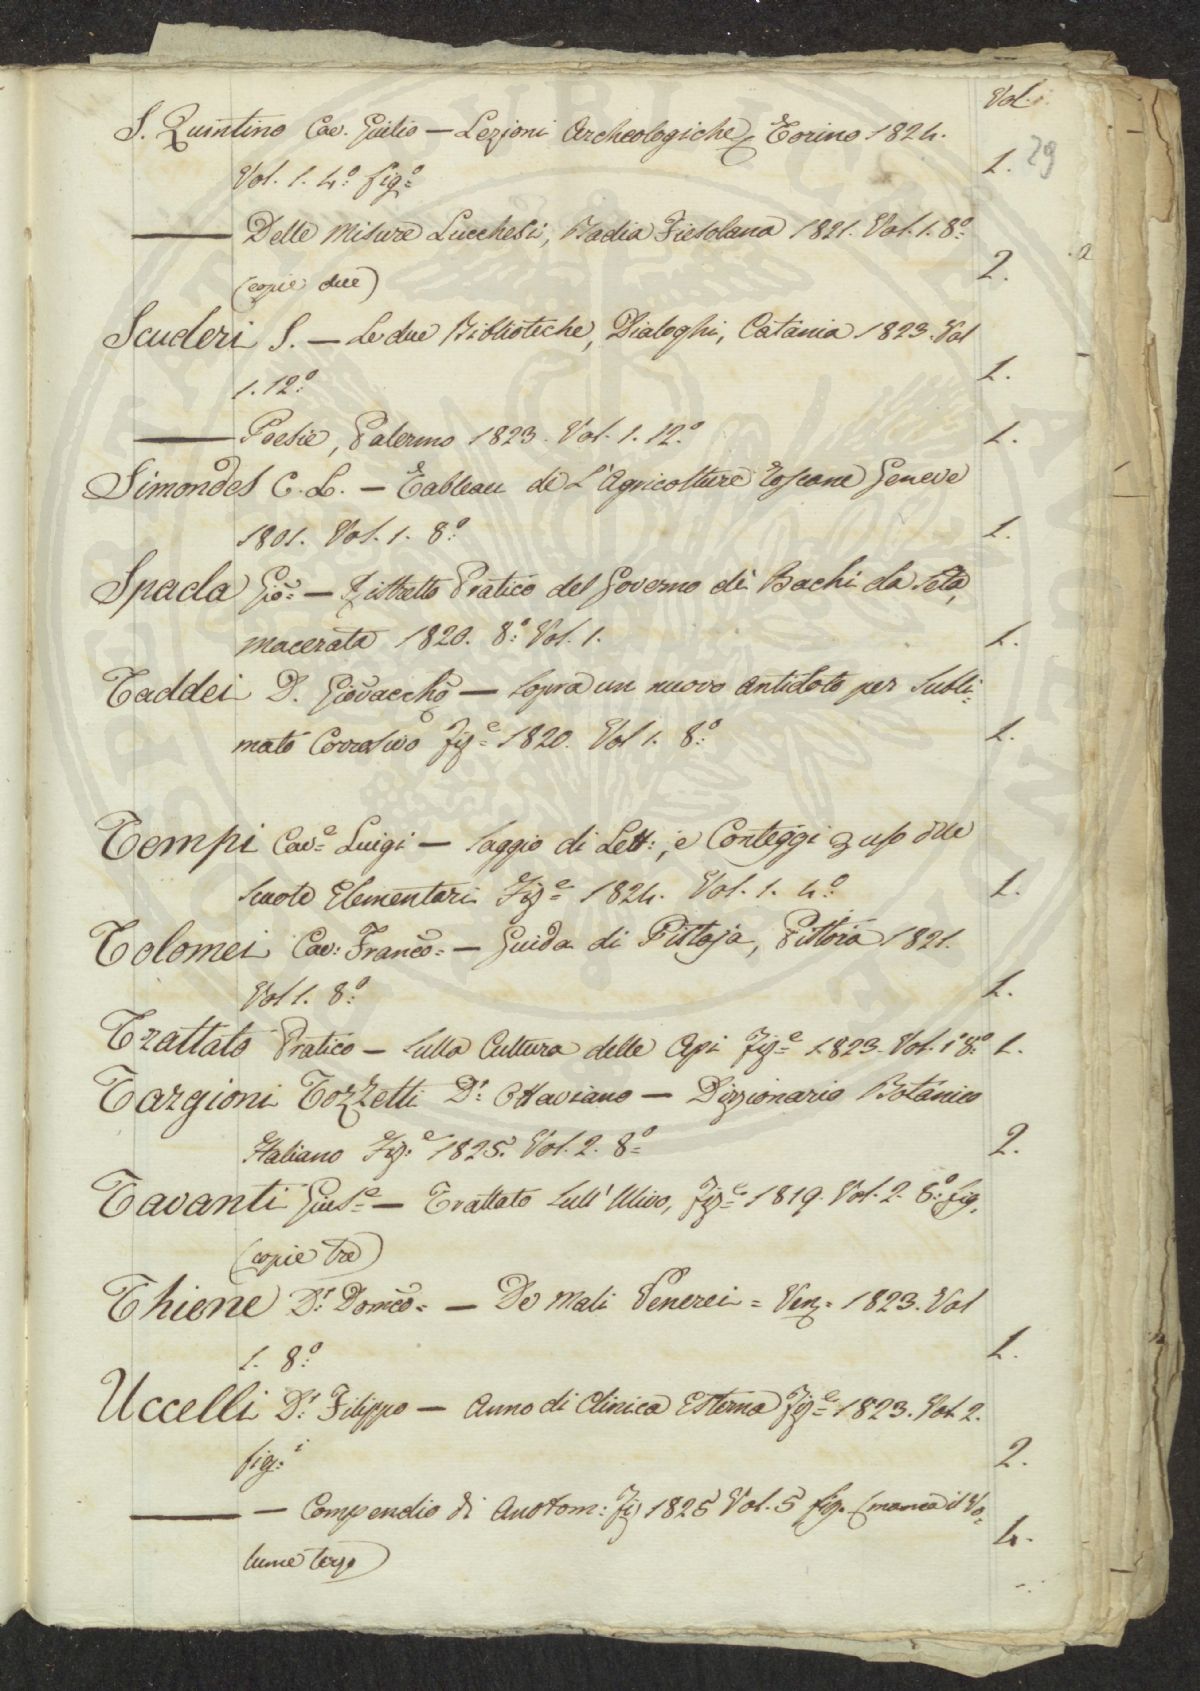 Vol.
S. Quintino Cav. Giulio — Lezioni Archeologiche, Torino 1824.
Vol. 1. 4.º fig.º 1. 29
——— Delle Misure Lucchesi, Badia Fiesolana 1821. Vol. 1. 8.º
(copie due) 2.
Scuderi S. — Le due Biblioteche, Dialoghi, Catania 1823. Vol
1. 12.º 1.
——— Poesie, Palermo 1823. Vol. 1. 12.º 1.
Simondes C. L. — Tableau de L'Agricolture Toscane Geneve
1801. Vol. 1. 8.º 1.
Spada Gio: — Ristretto Pratico del Governo di Bachi da Seta,
Macerata 1820. 8.º Vol. 1. 1.
Taddei D. Giovacchº — Sopra un nuovo antidoto per Subli-
mato Corrosivo Fig.e 1820. Vol 1. 8.º 1.
Tempi Cav.e Luigi — Saggio di Lett:, e Conteggi uso delle
Scuole Elementari Fig.e 1824. Vol. 1. 4.º 1.
Tolomei Cav: Franco: — Guida di Pistoja, Pistoia 1821.
Vol 1. 8.º 1.
Trattato Pratico — Sulla Cultura delle Api Fig.e 1823. Vol. 1º 8.º 1.
Targioni Tozzetti D.r Ottaviano — Dizzionario Botanico
Italiano Fig.e 1825. Vol. 2. 8.º 2.
Tavanti Gius.e — Trattato Sull' Ulivo, Fig.e 1819. Vol. 2. 8.º fig.
(copie tre)
Thiene D.r Domco: — De Mali Venerei = Ven. 1823. Vol
1. 8.º 1.
Uccelli D.r Filippo — Anno di Clinica Esterna Fig.e 1823. Vol. 2.
fig.i 2.
——— — Compendio di Anotom: Fi 1825 Vol. 5 fig. (manca il Vo-
lume terzo) 4.